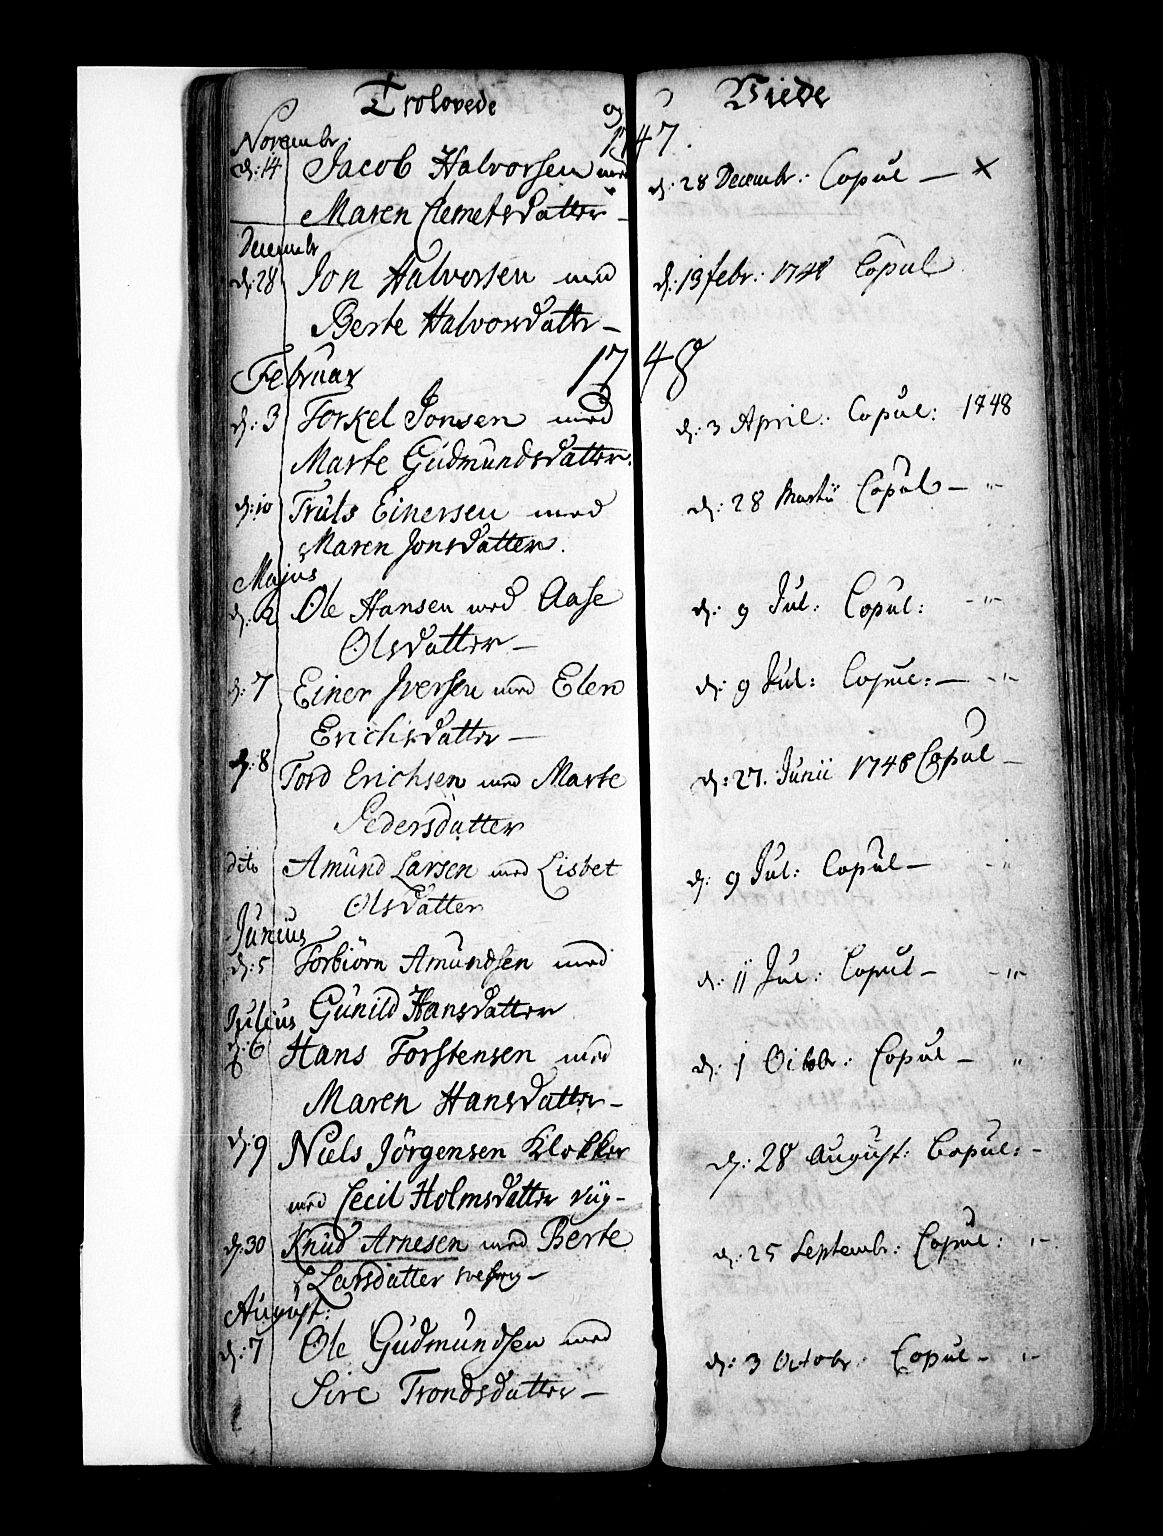 Trolovede og Viede
Novembr: 1747.
d: 14 Jacob Halvorsen med d: 28 Decembr: Copul — x
Maren Clemetsdatter —
Decembr
d: 28 Jon Halvorsen med d: 13 febr: 1748 Copul
Berte Halvorsdattr —
Februar 1748
d: 3 Torkel Jonsen med d: 3 April: Copul: 1748
Marte Gudmundsdatter.
d: 10 Truls Einersen med d: 28 Martii Copul — "
Maren Jonsdatter.
Majus
d: 2 Ole Hansen med Aase d: 9 Jul: Copul: - " -
Olsdatter —
d: 7 Einer Iversen med Elen d: 9 Jul: Copul: — - " -
Erichsdatter —
d: 8 Tord Erichsen med Marte d: 27. Junii 1748 Copul —
Pedersdatter
dito Amund Larsen med Lisbet d: 9 Jul: Copul — - "
Olsdatter
Junius
d: 5 Torbiörn Amundsen med d: 11 Jul: Copul — - " -
Gunild Hansdatter
Julius
d: 6 Hans Torstensen med d: 1 Octobr: Copul — "
Maren Hansdatter —
d: 9 Niels Jörgensen Klokker d: 28 August: Copul: —
med Cecil Holmsdatter
d: 30 Knud Arnesen med Berte d: 25 Septembr: Copul: " -
Larsdatter
August:
d: 7 Ole Gudmundsen med d: 3 Octobr: Copul — " -
Sire Trondsdatter —